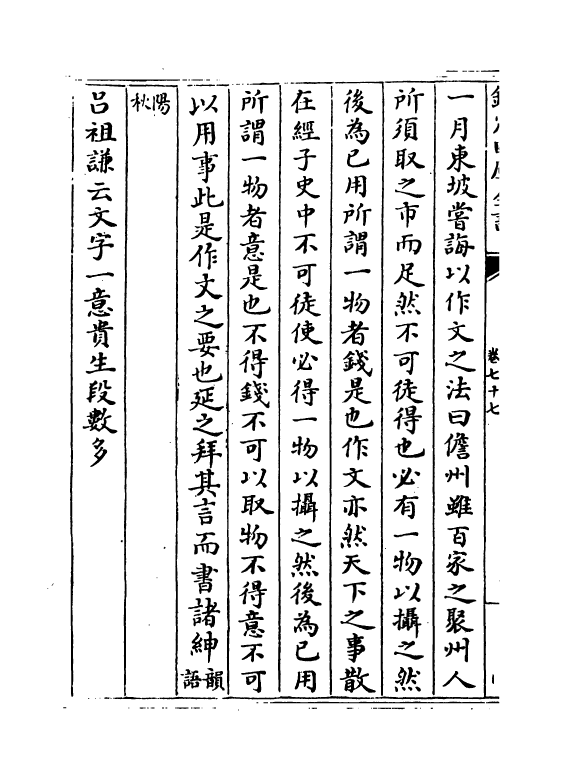 一月東坡嘗誨以作文之法曰儋州雖百家之聚州人
所須取之市而足然不可徒得也必有一物以攝之然
後為已用所謂一物者錢是也作文亦然天下之事散
在經子史中不可徒使必得一物以攝之然後為已用
所謂一物者意是也不得錢不可以取物不得意不可
以用事此是作文之要也延之拜其言而書諸紳韻語
陽秋
呂祖謙云文字一意貴生段數多
卷七十七